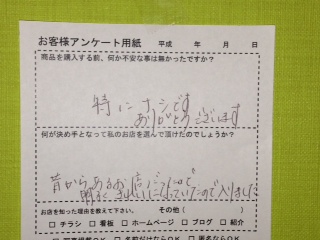 お客様アンケート用紙 平成 年 月 日
商品を購入する前、何か不安な事は無かったですか?
特にナシです
ありがとうございます
何が決め手となって私のお店を選んで頂けたのでしょうか?
昔からあるお店
明るく
ので入りました
お店を知った理由を教えて下さい。 その他( )
□ チラシ □ 看板 □ ホームページ □ ブログ □ 紹介